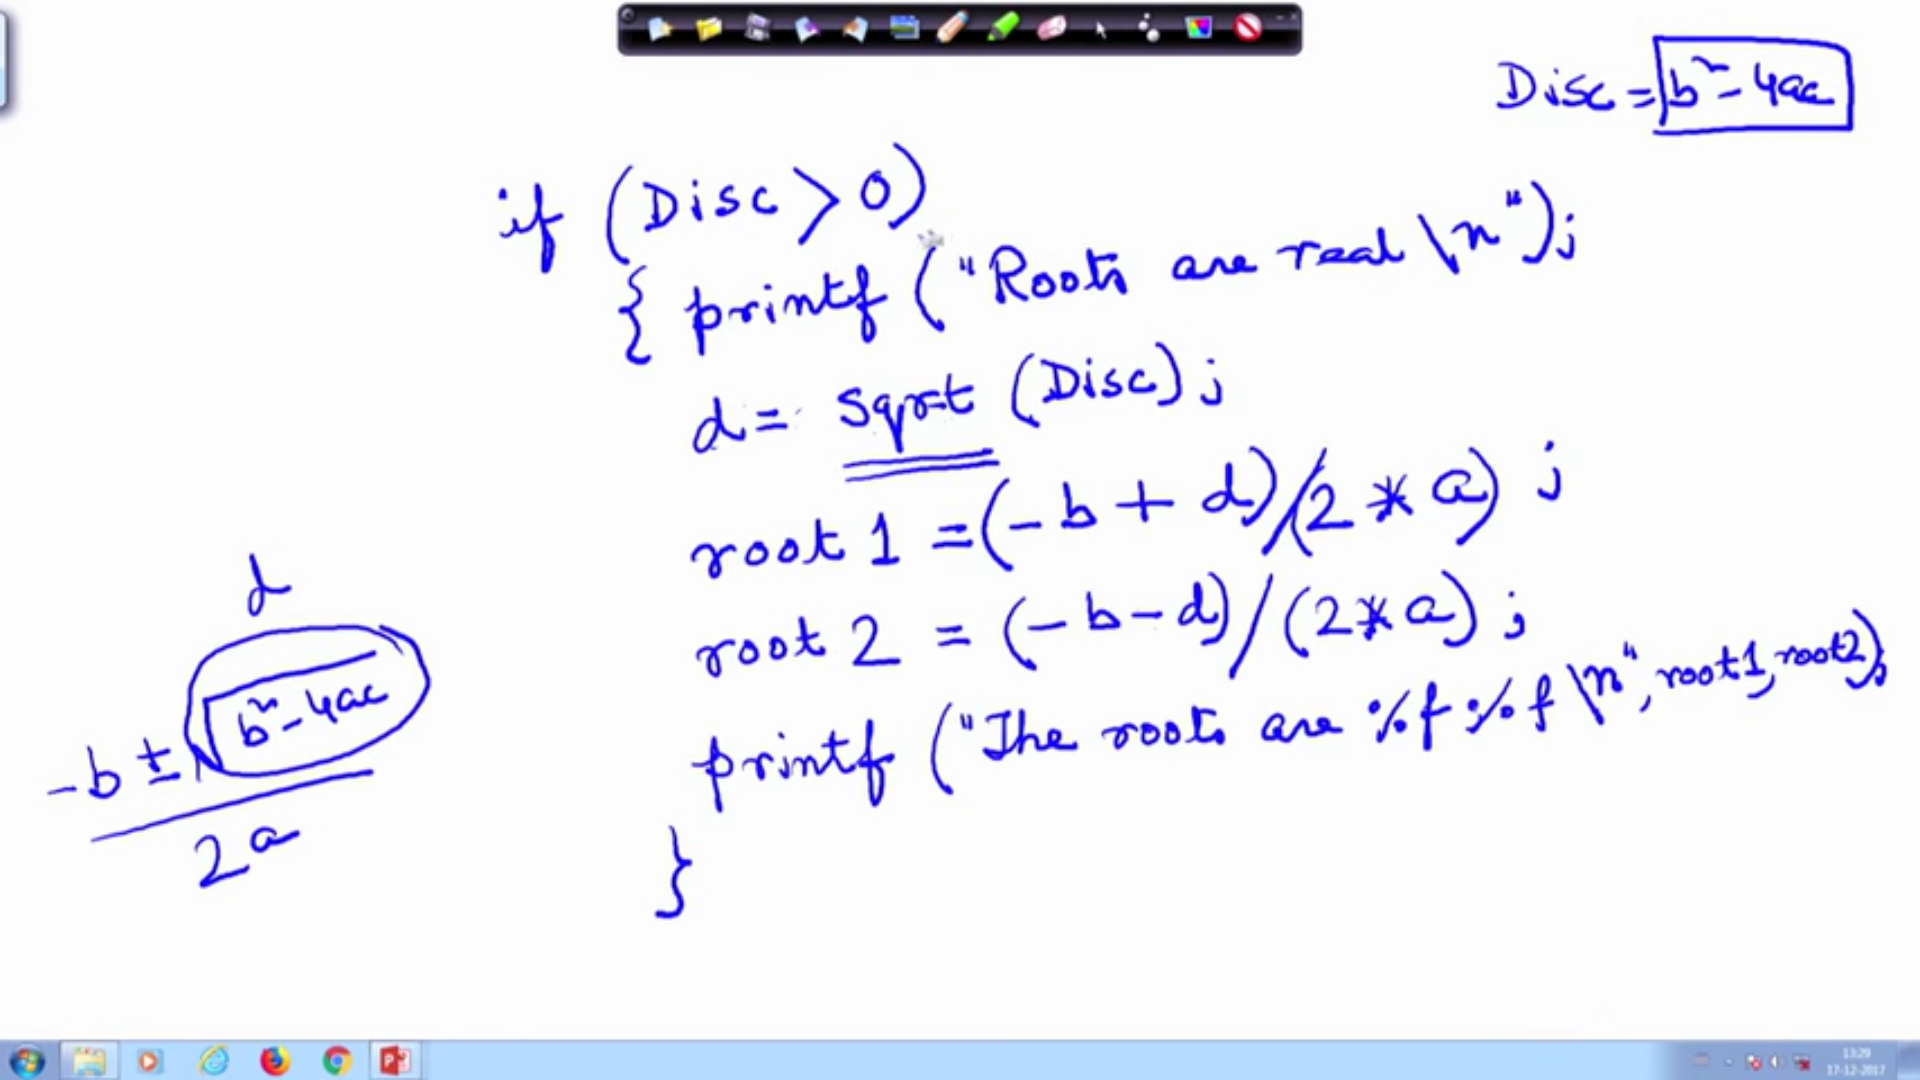 Disc = b² - 4ac
if (Disc > 0)
{ printf ("Roots are real \n");
d = sqrt (Disc);
root 1 = (-b + d)/(2 * a) ;
root 2 = (-b-d)/(2*a) ;
printf ("The roots are %f %f \n", root1, root2);
}
d
-b ± √b² - 4ac
2a
13:29
17-12-2017